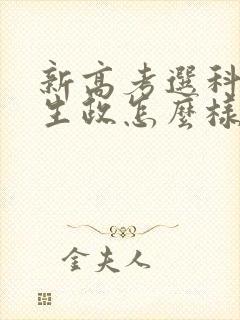 新高考選科
生政怎麼樣
金夫人